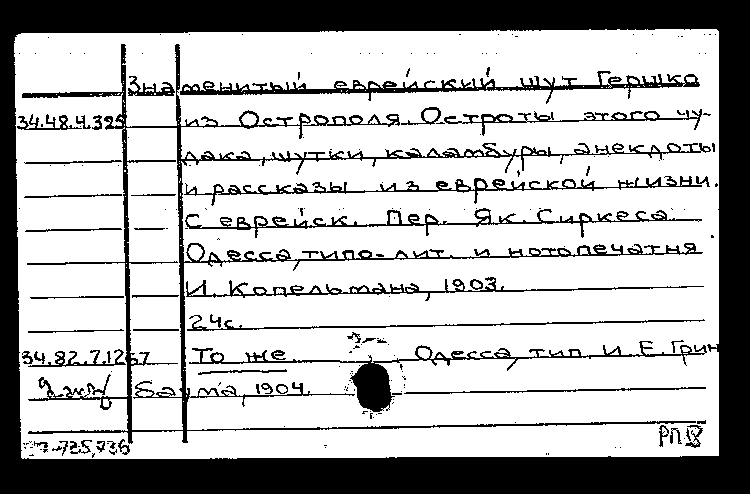 Знаменитый еврейский шут Гершко
34.48.4.325 из Острополя. Остроты этого чу-
дака, шутки, каламбуры, анекдоты
и рассказы из еврейской жизни.
С еврейск. Пер. Як. Сиркеса.
Одесса, типо-лит. и нотопечатня
И. Копельмана, 1903.
24с.
34.82.7.1267 То же. Одесса, тип. И. Е. Грин
баума, 1904.
725,736 РП